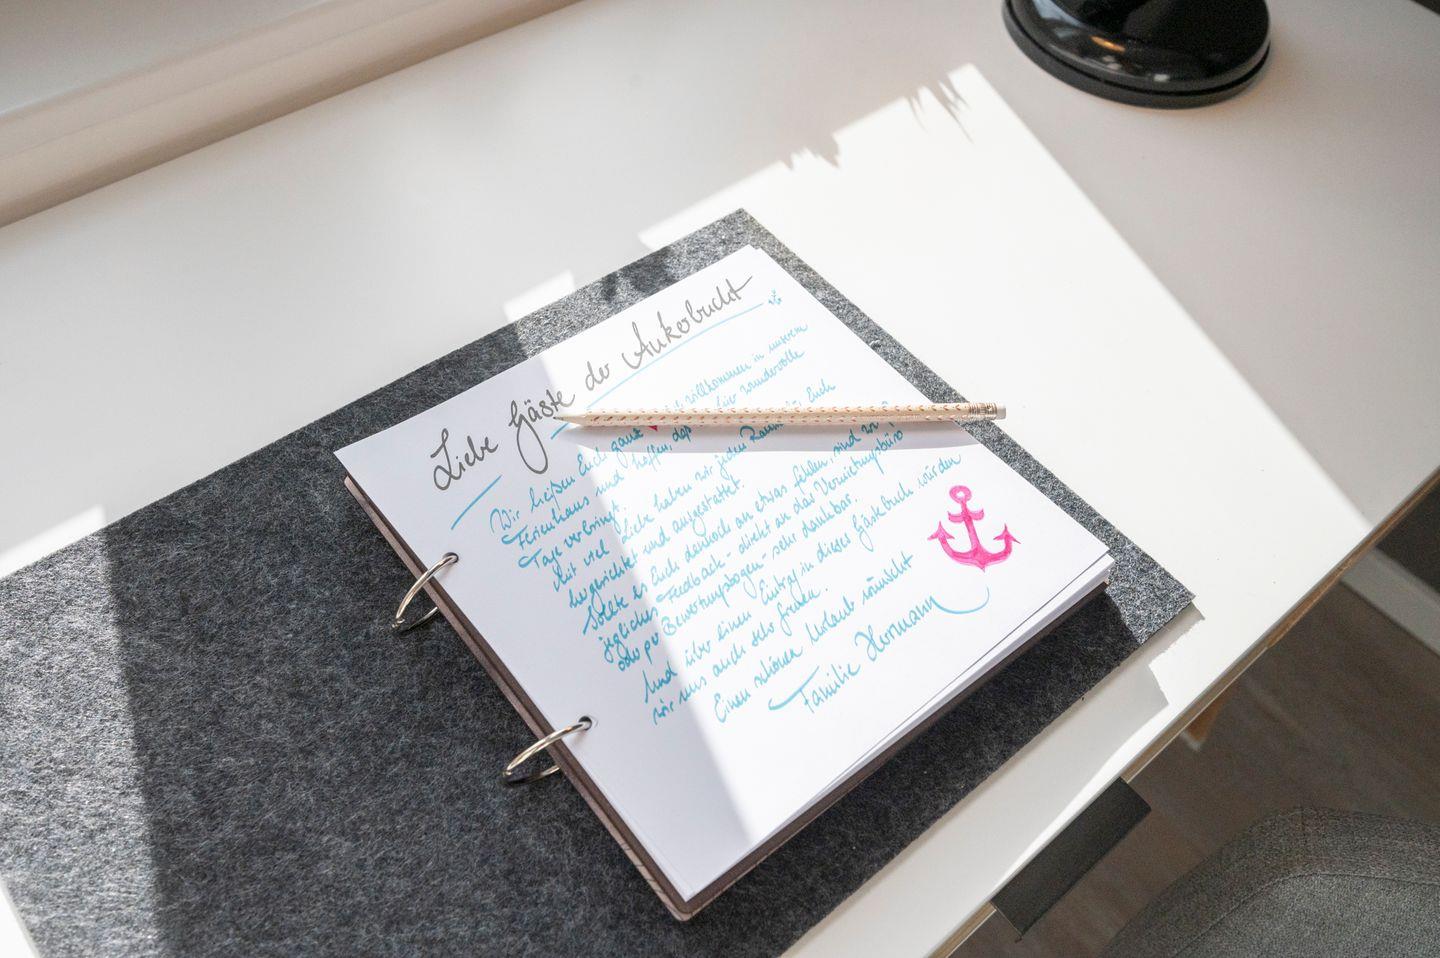 Liebe Gäste der Ankerbucht
Wir heißen Euch ganz willkommen in unserem
Ferienhaus und hoffen, daß hier wundervolle
Tage verbringt.
Mit viel Liebe haben wir jeden Raum für Euch
hergerichtet und ausgestattet.
Sollte Euch dennoch an etwas fehlen, sind wir
jegliches Feedback - direkt an das Vermietungsbüro
oder per Bewertungsbogen - sehr dankbar.
Und über einen Eintrag in dieses Gästebuch würden
wir uns auch sehr freuen.
Einen schönen Urlaub wünscht
Familie Herrmann